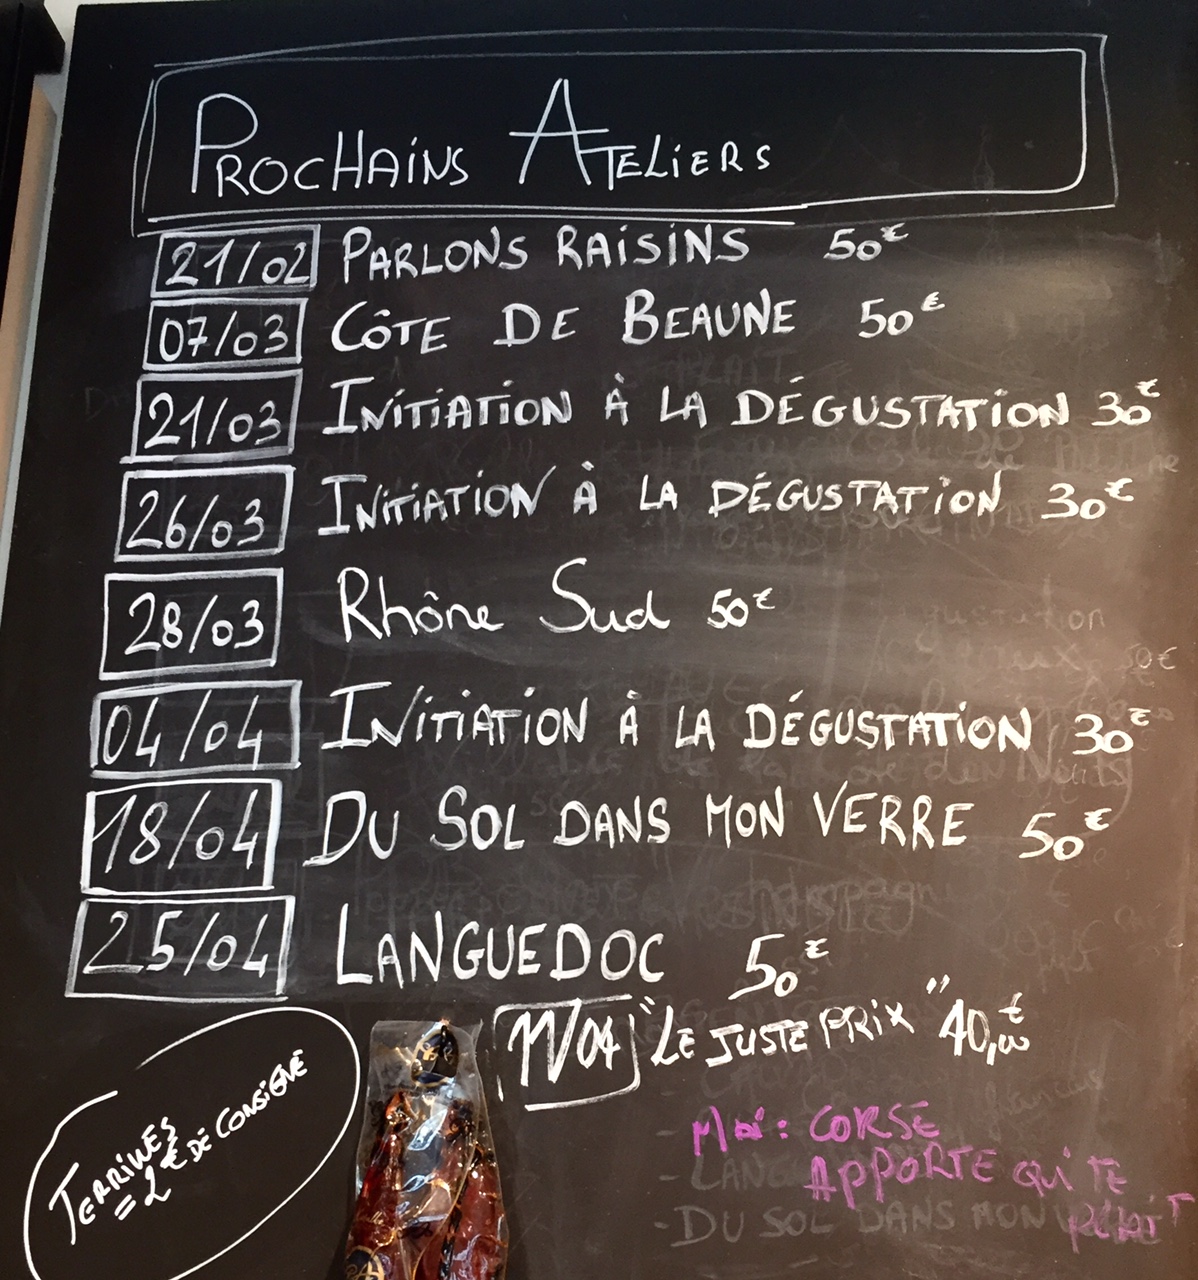 PROCHAINS ATELIERS
21/02 PARLONS RAISINS 50€
07/03 CÔTE DE BEAUNE 50€
21/03 INITIATION À LA DÉGUSTATION 30€
26/03 INITIATION À LA DÉGUSTATION 30€
28/03 Rhône Sud 50€
04/04 INITIATION À LA DÉGUSTATION 30€
18/04 DU SOL DANS MON VERRE 50€
25/04 LANGUEDOC 50€
11/04 "LE JUSTE PRIX" 40,00€
TERRINES
= 2€ DE CONSIGNE
MAI: CORSE
APPORTE QUI TE
PLAIT
- LANGU
- DU SOL DANS MON